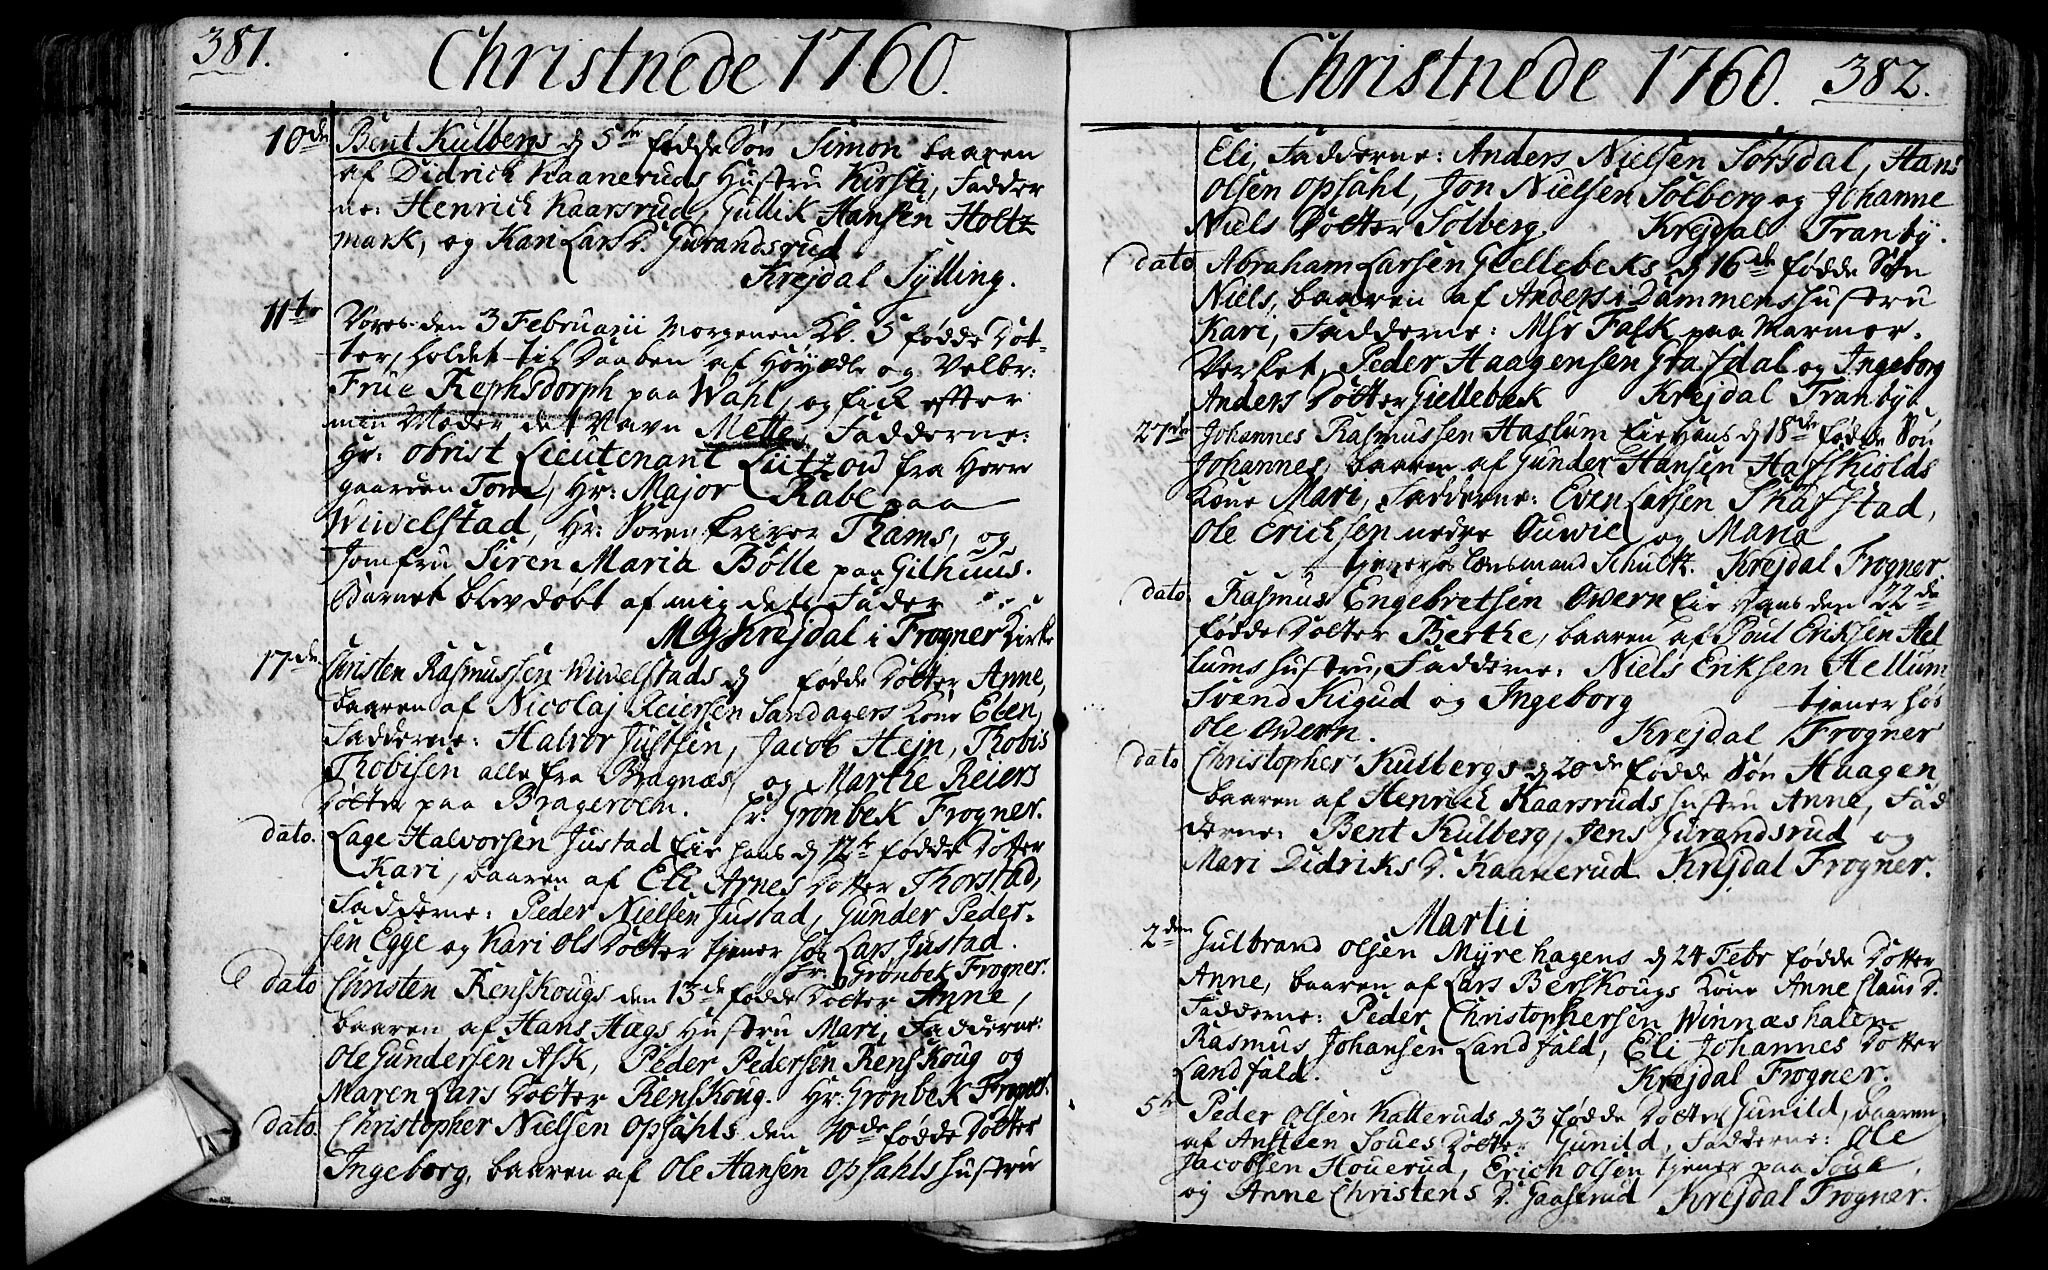 381. Christnede 1760.
10de Bent Kulbergs d 5te fødde Søn Simon baaren
af Didrich Kaaneruds Hustru Kirsti, Fadder
ne: Henrich Kaarsrud, Gullik Hansen Holtz
mark, og Kari Lars D. Gurandsrud
Krejdal Sylling.
11te Vores den 3 Februarii Morgenen Kl. 5 fødde Dot-
ter, holdet til Daaben af Høyædle og Velbr:
Frue Rephsdorph paa Wahl, og fick efter
min Moder det Navn Mette, Fadderne:
Hr: Obrist Lieutenant Lützow fra Herre
gaarden Tom, Hr: Major Rabe paa
Wiwelstad, Hr: Sorenskriver Thams, og
Jomfru Siren Maria Bölle paa Gilhuus.
Barnet blev döbt af mig dets Fader
MG Krejdal i Frogner Kirke
17de Christen Rasmussen Wiwelstads d fødde Dotter Anne,
baaren af Nicolaj Reiersen Sandagers Kone Eben,
Fadderne: Halvor Justsen, Jacob Hejn, Thobis
Thobisen alle fra Bragnæs, og Marthe Reiers
Dotter paa Brageröen. Hr. Grönbek Frogner.
dato. Lage Halvorsen Justad Eie hans d 12te fødde Dotter
Kari, baaren af Eli Arnes Dotter Thorstad,
Fadderne: Peder Nielsen Justad, Gunder Peder-
sen Egge og Kari Ols Dotter tjener hos Lars Justad.
Hr. Grönbek Frogner.
dato Christen Renskougs den 13de fødde Dotter Anne,
baaren af Hans Hægs Hustru Mari, Fadderne:
Ole Gundersen Ask, Peder Pedersen Renskoug og
Maren Lars Dotter Renskoug. Hr: Grönbek Frogner.
dato. Christopher Nielsen Opsahls den 10de fødde Dotter
Ingeborg, baaren af Ole Hansen Opsahls Hustru
Christnede 1760. 382.
Eli, Fadderne: Anders Nielsen Sørsdal, Hans
Olsen Opsahl, Jon Nielsen Solberg og Johanne
Niels Dotter Solberg. Krejdal Tranby.
dato Abraham Larsen Giellebeks d 16de fødde Søn
Niels, baaren af Anders i Dammens Hustru
Kari, Fadderne: Msr Falk paa Marmor-
Verket, Peder Haagensen Grafdal og Ingeborg
Anders Dotter Giellebæk Krejdal Tranby
27de Johannes Rasmussen Haslum Eie hans d 18de fødde Søn
Johannes, baaren af Gunder Hansen Hafskiolds
Kone Mari, Fadderne: Even Larsen Skafstad,
Ole Erichsen nedre Ouwie og Maria
tjener hos Lensmand Schultz. Krejdal Frogner
dato Rasmus Engebretsen Owern Eie hans den 22de
fødde Dotter Berthe, baaren af Poul Eriksen Hel
lums Hustru, Fadderne: Niels Eriksen Hellum:
Svend Sigud og Ingeborg tjener hos
Ole Owern. Krejdal Frogner
dato Christopher Kulbergs d 20de fødde Søn Haagen
baaren af Henrich Kaarsruds Hustru Anne, Fad
derne: Bent Kulberg, Jens Gurandsrud og
Mari Didriks D. Kaanerud Krejdal Frogner.
Martii
2den Gulbrand Olsen Myrehagens d 24 Febr fødde Dotter
Anne, baaren af Lars Berskougs Kone Anne Claus D.
Fadderne: Peder Christophersen Winnæshalen
Rasmus Johansen Landfald, Eli Johannes Dotter
Landfald. Krejdal Frogner.
5te Peder Olsen Katteruds d 3 fødde Dotter Gunild, baaren
af Ansteen Soues Dotter Gunild, Fadderne: Ole
Jacobsen Houerud, Erich Olsen tjener paa Soue,
og Anne Christens D. Gaaserud Krejdal Frogner.